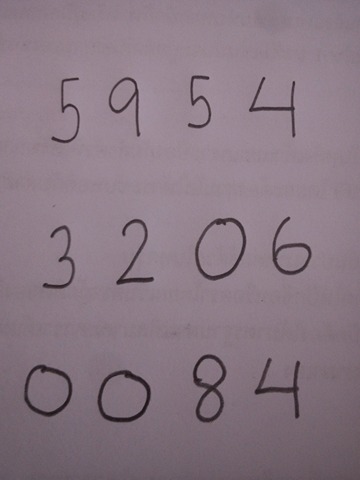 5 9 5 4
3 2 0 6
0 0 8 4